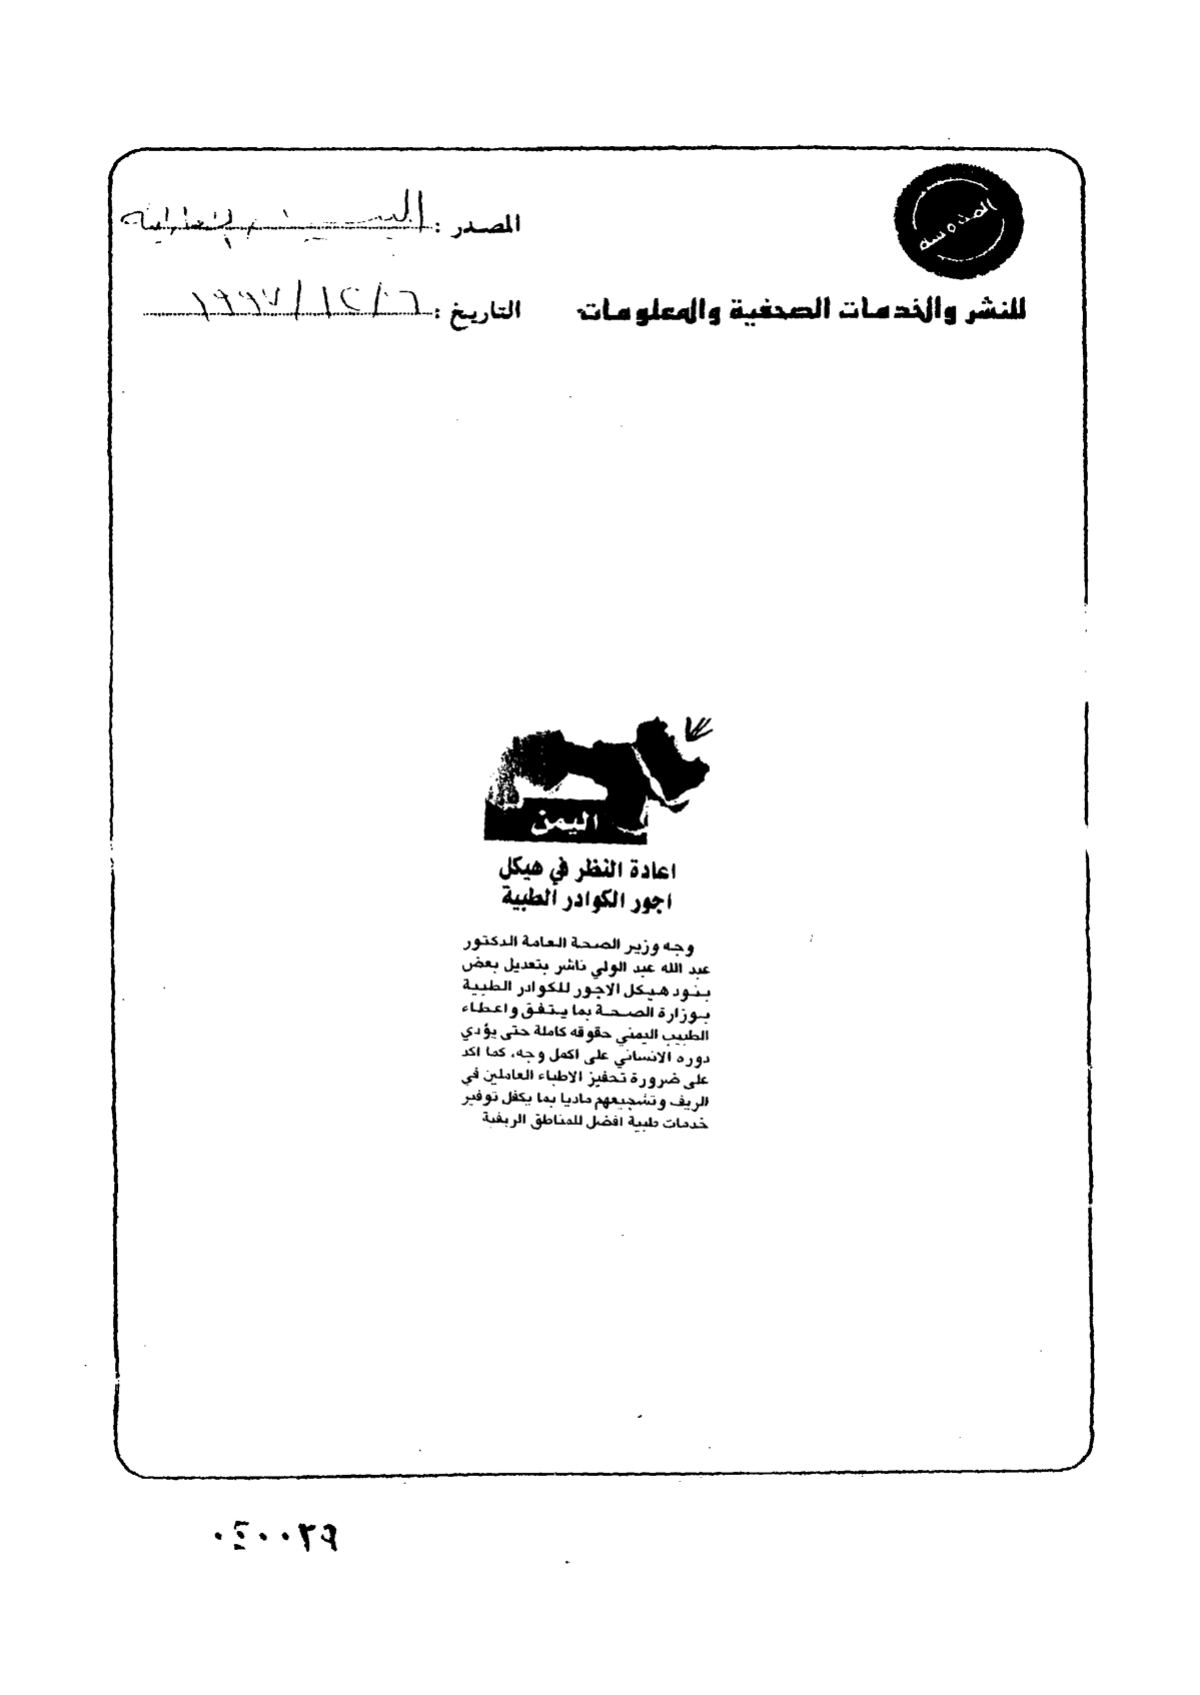 المصدر :
للنشر والخدمات الصحفية والمعلومات
التاريخ : ٦ / ١٢ / ١٩٩٧
اليمن
اعادة النظر في هيكل
اجور الكوادر الطبية
وجه وزير الصحة العامة الدكتور
عبد الله عبد الولي ناشر بتعديل بعض
بنود هيكل الاجور للكوادر الطبية
بوزارة الصحة بما يتفق واعطاء
الطبيب اليمني حقوقه كاملة حتى يؤدي
دوره الانساني على اكمل وجه، كما اكد
على ضرورة تحفيز الاطباء العاملين في
الريف وتشجيعهم ماديا بما يكفل توفير
خدمات طبية افضل للمناطق الريفية